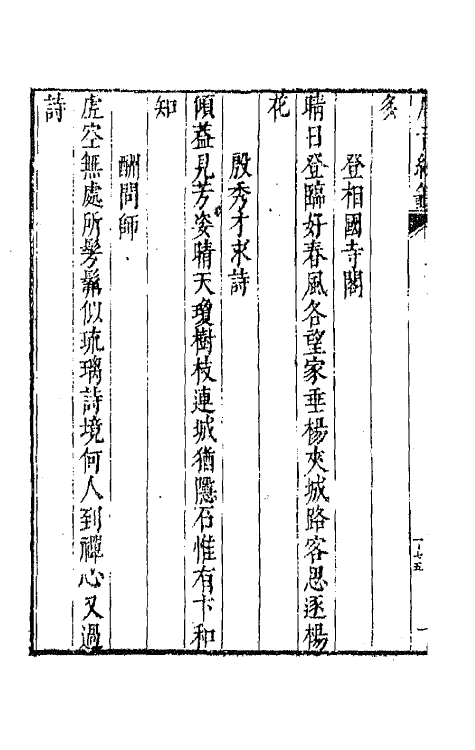 唐音統籤
一七五
一
炙
登相國寺閣
晴日登臨好春風各望家垂楊夾城路客思逐楊
花
殷秀才求詩
傾葢見芳姿晴天瓊樹枝連城猶隱石惟有卞和
知
酬問師
虛空無處所髣髴似琉璃詩境何人到禪心又過
詩